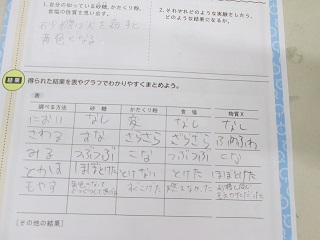 1. 自分の知っている砂糖、かたくり粉、
食塩の性質を思い出す。
2. それぞれどのような実験をしたら、
どのような結果になるか。
黒色くなる
結果
得られた結果を表やグラフでわかりやすくまとめよう。
表:
調べる方法 砂糖 かたくり粉 食塩 物質X
におい なし 変 なし なし
さわる すな さらさら ざらざら
みる つぶつぶ こな つぶつぶ こな
とかす ほぼとけた とけない とけた ほぼとけた
もやす 燃えなかった
[その他の結果]